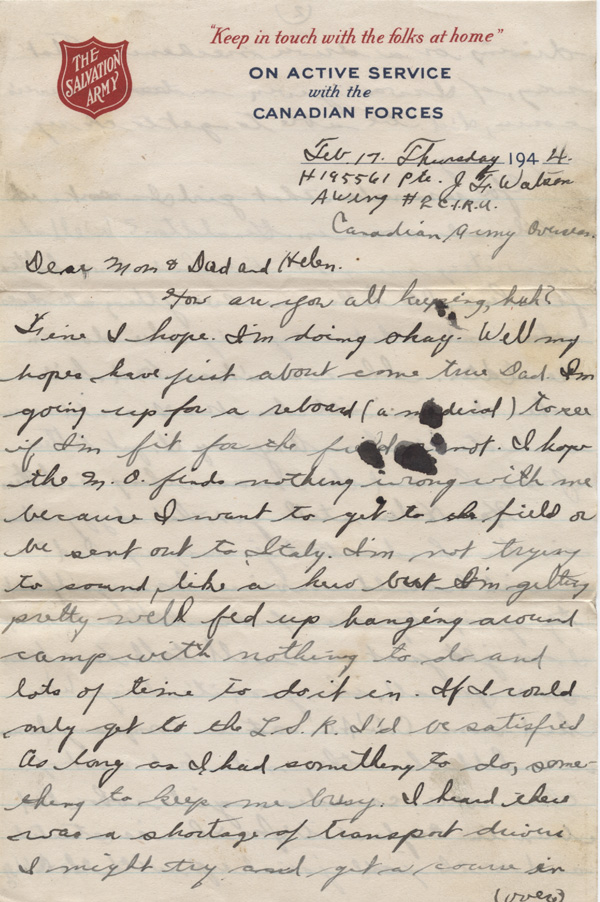 "Keep in touch with the folks at home"
THE
SALVATION
ARMY
ON ACTIVE SERVICE
with the
CANADIAN FORCES
Feb 17. Thursday 1944.
H195561 Pte. J. Watson
A Wing #2 C.I.R.U.
Canadian Army Overseas.
Dear Mom & Dad and Helen.
How are you all keeping, huh?
Fine I hope. I'm doing okay. Well my
hopes have just about come true Dad. I'm
going up for a reboard (a medical) to see
if I'm fit for the field or not. I hope
the M.O. finds nothing wrong with me
because I want to get to the field or
be sent out to Italy. I'm not trying
to sound like a hero but I'm getting
pretty well fed up hanging around
camp with nothing to do and
lots of time to do it in. If I could
only get to the L.S.R. I'd be satisfied
As long as I had something to do, some-
thing to keep me busy. I heard there
was a shortage of transport drivers
I might try and get a course in
(over)